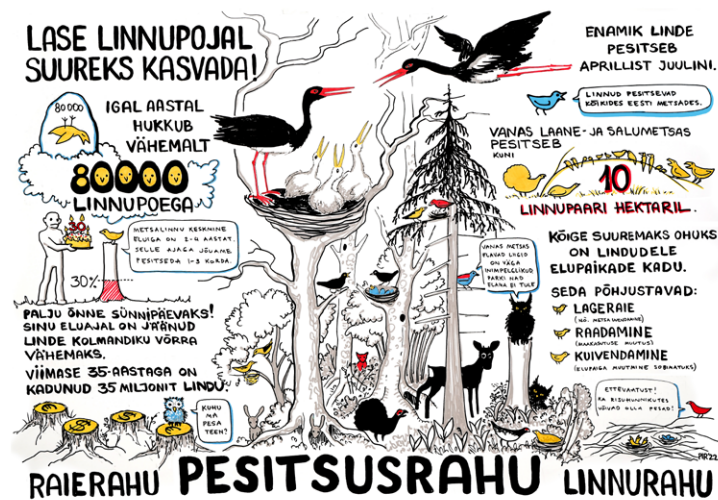 LASE LINNUPOJAL
SUUREKS KASVADA!
80000
IGAL AASTAL
HUKKUB
VÄHEMALT
80000
LINNUPOEGA
30
METSALINNU KESKMINE
ELUIGA ON 2-4 AASTAT.
SELLE AJAGA JÕUAME
PESITSEDA 1-3 KORDA.
30%
PALJU ÕNNE SÜNNIPÄEVAKS!
SINU ELUAJAL ON JÄÄNUD
LINDE KOLMANDIKU VÕRRA
VÄHEMAKS.
VIIMASE 35-AASTAGA ON
KADUNUD 35 MILJONIT LINDU.
KUHU
MA
PESA
TEEN?
ENAMIK LINDE
PESITSEB
APRILLIST JUULINI.
LINNUD PESITSEVAD
KÕIKIDES EESTI METSADES.
VANAS LAANE- JA SALUMETSAS
PESITSEB
KUNI
10
LINNUPAARI HEKTARIL.
VANAS METSAS
ELAVAD LIIGID
ON VÄGA
INIMPELGLIKUD
PARKI NAD
ELAMA EI TULE
KÕIGE SUUREMAKS OHUKS
ON LINDUDELE
ELUPAIKADE KADU.
SEDA PÕHJUSTAVAD:
LAGERAIE
(NÖ. METSA UUENDAMINE)
RAADAMINE
(MAAKASUTUSE MUUTUS)
KUIVENDAMINE
(ELUPAIGA MUUTMINE SOBIMATUKS)
ETTEVAATUST!
KA RISUHUNNIKUTES
VÕIVAD OLLA PESAD!
RAIERAHU PESITSUSRAHU LINNURAHU